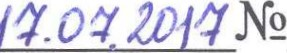 17.07.2017 №